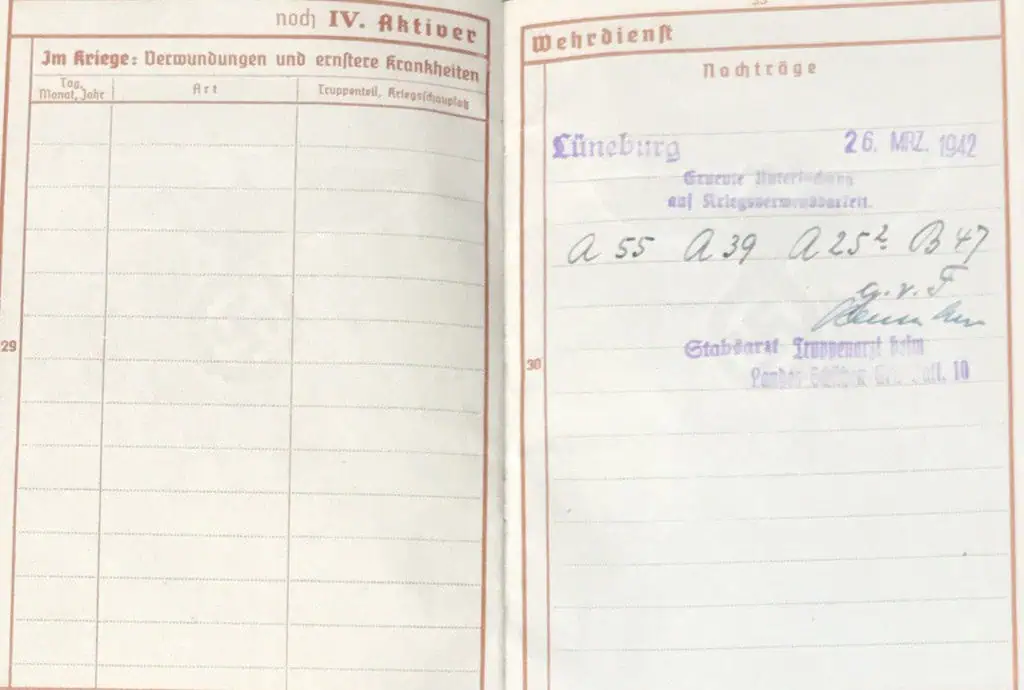 noch IV. Aktiver
Im Kriege: Verwundungen und ernstere Krankheiten
Tag, Monat, Jahr
Art
Truppenteil, Kriegsschauplatz
29
Wehrdienst
Nachträge
Lüneburg 26. MRZ. 1942
Erneute Untersuchung
auf Kriegsverwendbarkeit.
A 55 A 39 A 25² B 47
g.v. F
Stabsarzt Truppenarzt beim
Landes Schützen 10
30